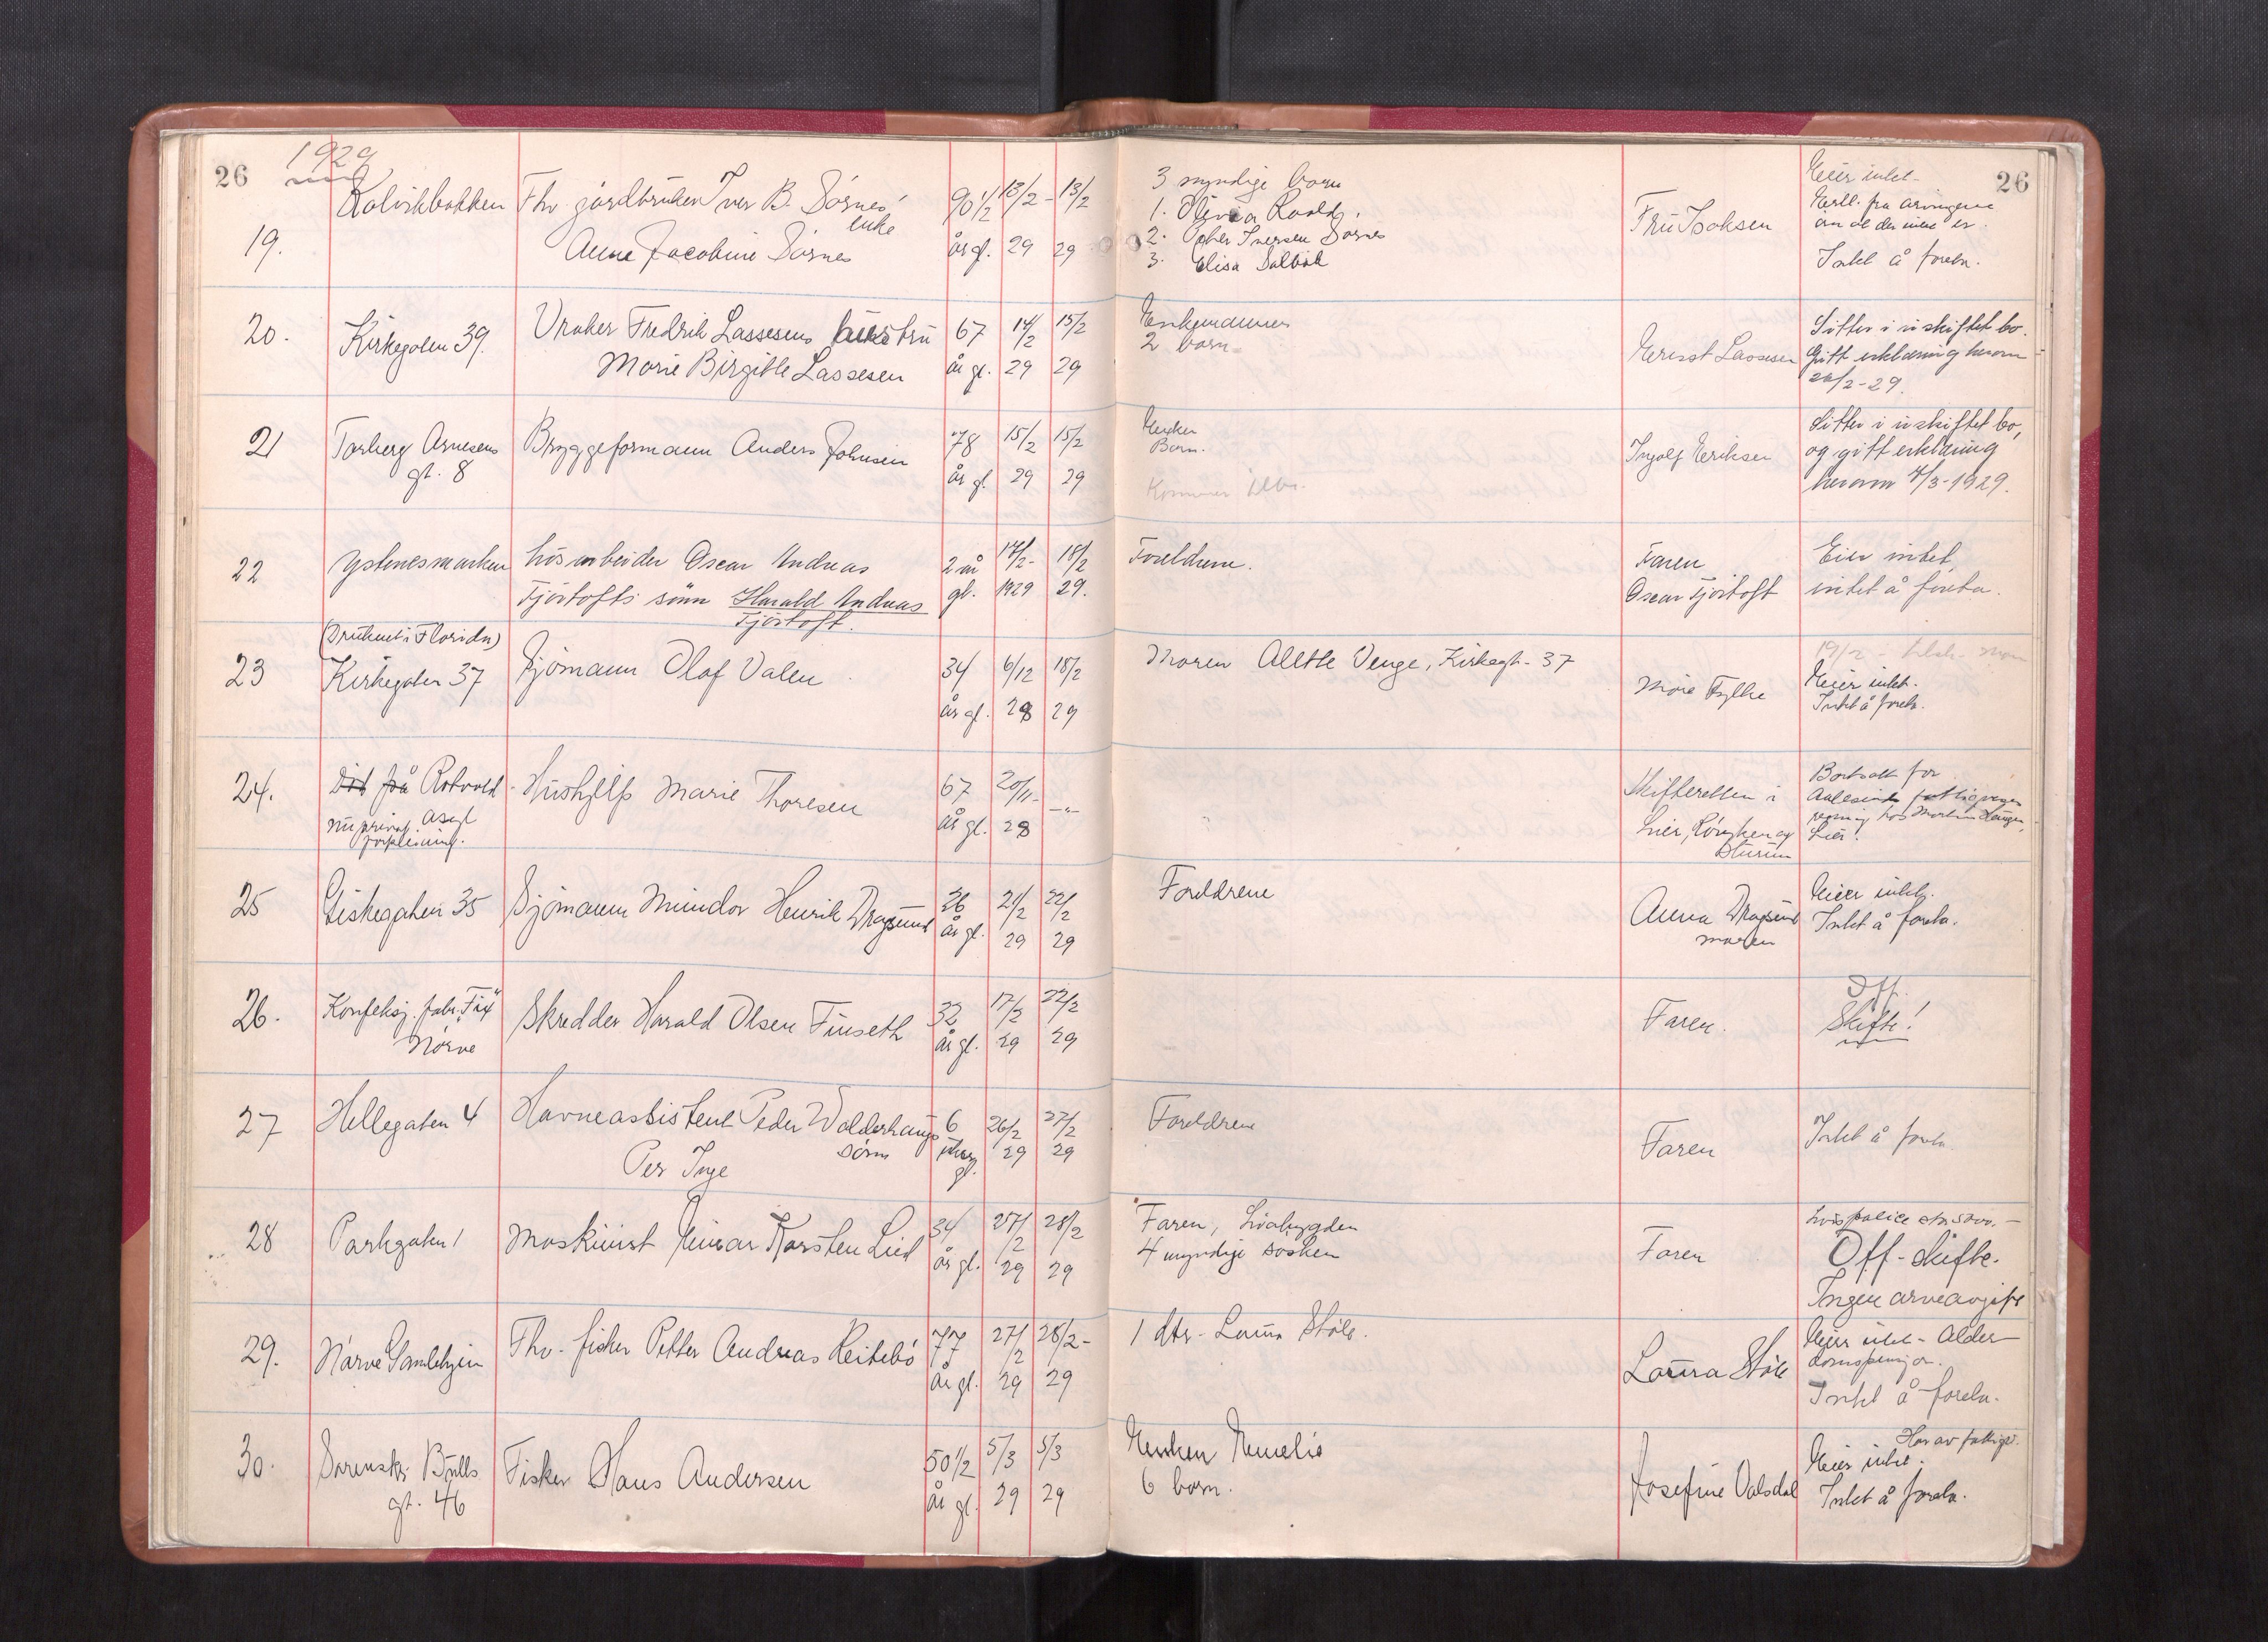 26 1929
19.
Kolvikbakken
Thv. gårdbruker Iver B. Sørnes'
enke
Anne Jacobine Sørnes
90 1/2 år gl.
13/2 - 29
13/2 29
3 myndige barn
1. Olivia Roald.
2. Iversen Sørnes
3. Elisa
Fru Isaksen
26
Eier intet -
Erkl. fra arvingene
om at der intet er.
Intet å foreta.
20.
Kirkegaten 39.
Vraker Fredrik Lassesens hustru
Marie Birgitte Lassesen
67 år gl.
14/2 29
15/2 29
Enkemannen
2 barn
Lassesen
Sitter i uskiftet bo.
Gitt erklæring herom
26/2-29.
21
Torberg Arnesens
gt. 8
Bryggeformann Anders Johnsen
78 år gl
15/2 29
15/2 29
Enken
Barn.
Kommer
Ingolf Eriksen
Sitter i uskiftet bo,
og gitt erklæring
herom 4/3-1929.
22
Ystenesmarken
Løsarbeider Oscar Andreas
Tjørtofts sønn Harald Andreas
Tjørtoft.
2 år gl.
17/2- 1929
18/2 29.
Foreldrene.
Faren
Oscar Tjørtoft
Eier intet,
intet å foreta.
23
(Druknet i Florida)
Kirkegaten 37
Sjømann Olaf Valen
34 år gl.
6/12 28
18/2 29
Moren Alette Venge, Kirkegt. 37
Møre Fylke
19/2 -
Eier intet.
Intet å foreta.
24.
Rotvold
Asyl
nu privat
forpleining.
Hushjelp Marie Thoresen
67 år gl.
20/11- 28
-"-
Skifteretten i
Lier, Røyken og
Hurum
Bortsatt for
Aalesunds fattigvesens
regning hos Martin Haugen,
Lier!
25
Giskegaten 35
Sjømann Mindor Henrik Dragsund
26 år gl.
21/2 29
22/2 29
Foreldrene
Anna Dragsund
moren
Eier intet.
Intet å foreta.
26.
Konfeksj. fabr. "Fix"
Nørve
Skredder Harald Olsen Finseth
32 år gl.
17/2 29
22/2 29
Faren.
Off.
Skifte!
27
Hellegaten 4
Havneassistent Peder Walderhaugs
sønn
Per Inge
6 gl.
26/2 29
27/2 29
Foreldrene
Faren
Intet å foreta
28
Parkgaten 1
Maskinist Einar Karsten Lied
34 år gl.
27/2 29
28/2 29
Faren, Liabygden
4 myndige søsken
Faren
Livspolice
Off. skifte.
Ingen arveavgift
29.
Nørve Gamlehjem
Thv. fisker Petter Andreas Reitebø
77 år gl.
27/2 29
28/2 - 29
1 dtr. Laura Støle.
Laura Støle
Eier intet - Alder-
domspensjon.
Intet å foreta.
30.
Sorenskr. Bulls
gt. 46
Fisker Hans Andersen
50 1/2 år gl.
5/3 29
5/3 29
Enken Emelie
6 barn.
Josefine Valsdal
Har av fattigv.
Eier intet.
Intet å foreta.